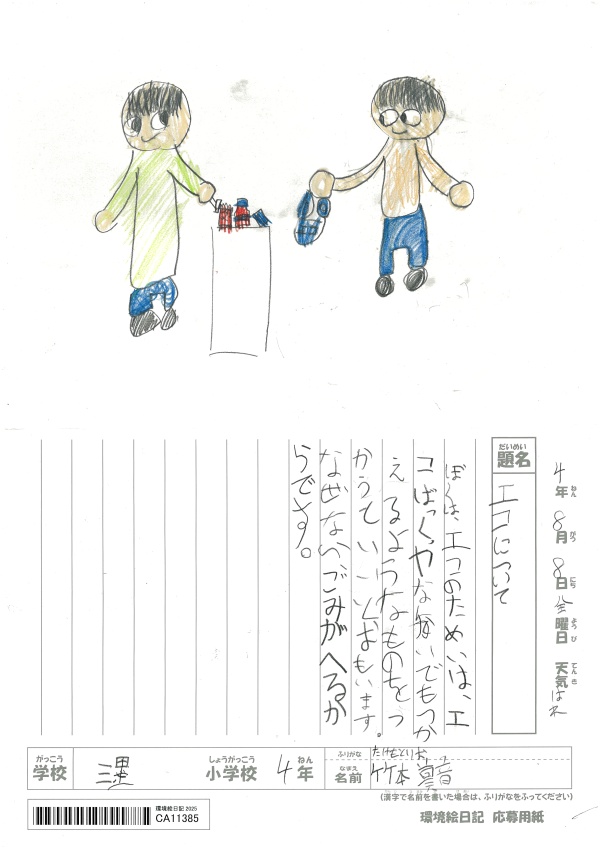 4年 8月 8日 金曜日 天気 はれ
ねん がつ にち ようび てんき
だいめい
題名
エコについて
ぼくは、エコのためいは、エ
コばっく、やな
いでもつか
えるようなものをつ
かうていいとおもいます。
なぜなら、ごみがへるか
らです。
がっこう
学校
三里
しょうがっこう
小学校
4年
ねん
ふりがな
たけもと
なまえ
名前
竹本
(漢字で名前を書いた場合は、ふりがなをふってください)
環境絵日記 2025
CA11385
環境絵日記 応募用紙